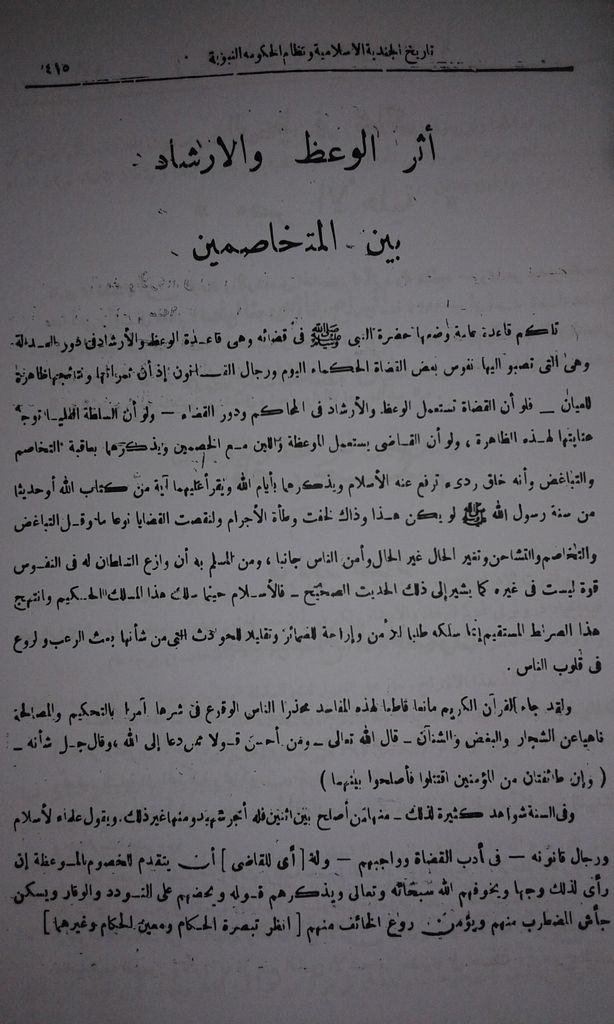 تاريخ الجندية الاسلامية ونظام الحكومه النبوية
٤١٥
أثر الوعظ والارشاد
بين المتخاصمين
قاعدة عامة وضعها حضرة النبى ﷺ فى قضائه وهى قاعدة الوعظ والأرشاد فى دور العدالة
وهى التى تصبو اليها نفوس بعض القضاة الحكماء اليوم ورجال القانون إذ أن ثمراتها ونتائجها ظاهرة
للعيان ــ فلو أن القضاة تستعمل الوعظ والأرشاد فى المحاكم ودور القضاء — ولو أن السلطة العليا توجه
عنايتها لهذه الظاهرة ، ولو أن القاضى يستعمل الموعظة واللين مع الخصمين ويذكرهما بعاقبة التخاصم
والتباغض وأنه خلق ردىء ترفع عنه الأسلام ويذكرهما بأيام الله ويقرأ عليهما آية من كتاب الله أو حديثا
من سنة رسول الله ﷺ لو يكن هذا وذاك لخفت وطأة الأجرام ولنقصت القضايا نوعا ما وقل التباغض
والتخاصم والتشاحن وتغير الحال غير الحال وأمن الناس جانبا ، ومن المسلم به أن وازع السلطان له فى النفوس
قوة ليست فى غيره كما يشير إلى ذلك الحديث الصحيح ــ فالأسلام حينما سلك هذا المسلك الحكيم وانتهج
هذا الصراط المستقيم إنما سلكه طلبا للأمن وإراحة للضمائر وتقليلا للحوادث التى من شأنها بعث الرعب والروع
فى قلوب الناس .
ولقد جاء القرآن الكريم مانعا قاطعا لهذه المفاسد محذرا الناس الوقوع فى شرها آمرا بالتحكيم والمصالحة
ناهيا عن الشجار والبغض والشنآن ــ قال الله تعالى ــ ومن أحسن قولا ممن دعا إلى الله ، وقال جل شأنه ــ
( وإن طائفتان من المؤمنين اقتتلوا فأصلحوا بينهما )
وفى السنة شواهد كثيرة لذلك ــ منها من أصلح بين اثنين فله أجر شهيد ومنها غير ذلك . ويقول علماء لأسلام
ورجال قانونه — فى أدب القضاة وواجبهم — وله [ أى للقاضى ] أن يتقدم للخصوم بالموعظة إن
رأى لذلك وجها ويخوفهم الله سبحانه وتعالى ويذكرهم قوله ويحضهم على التودد والوقار ويسكن
جأش المضطرب منهم ويؤمن روع الخائف منهم [ انظر تبصرة الحكام ومعين الحكام وغيرهما ]